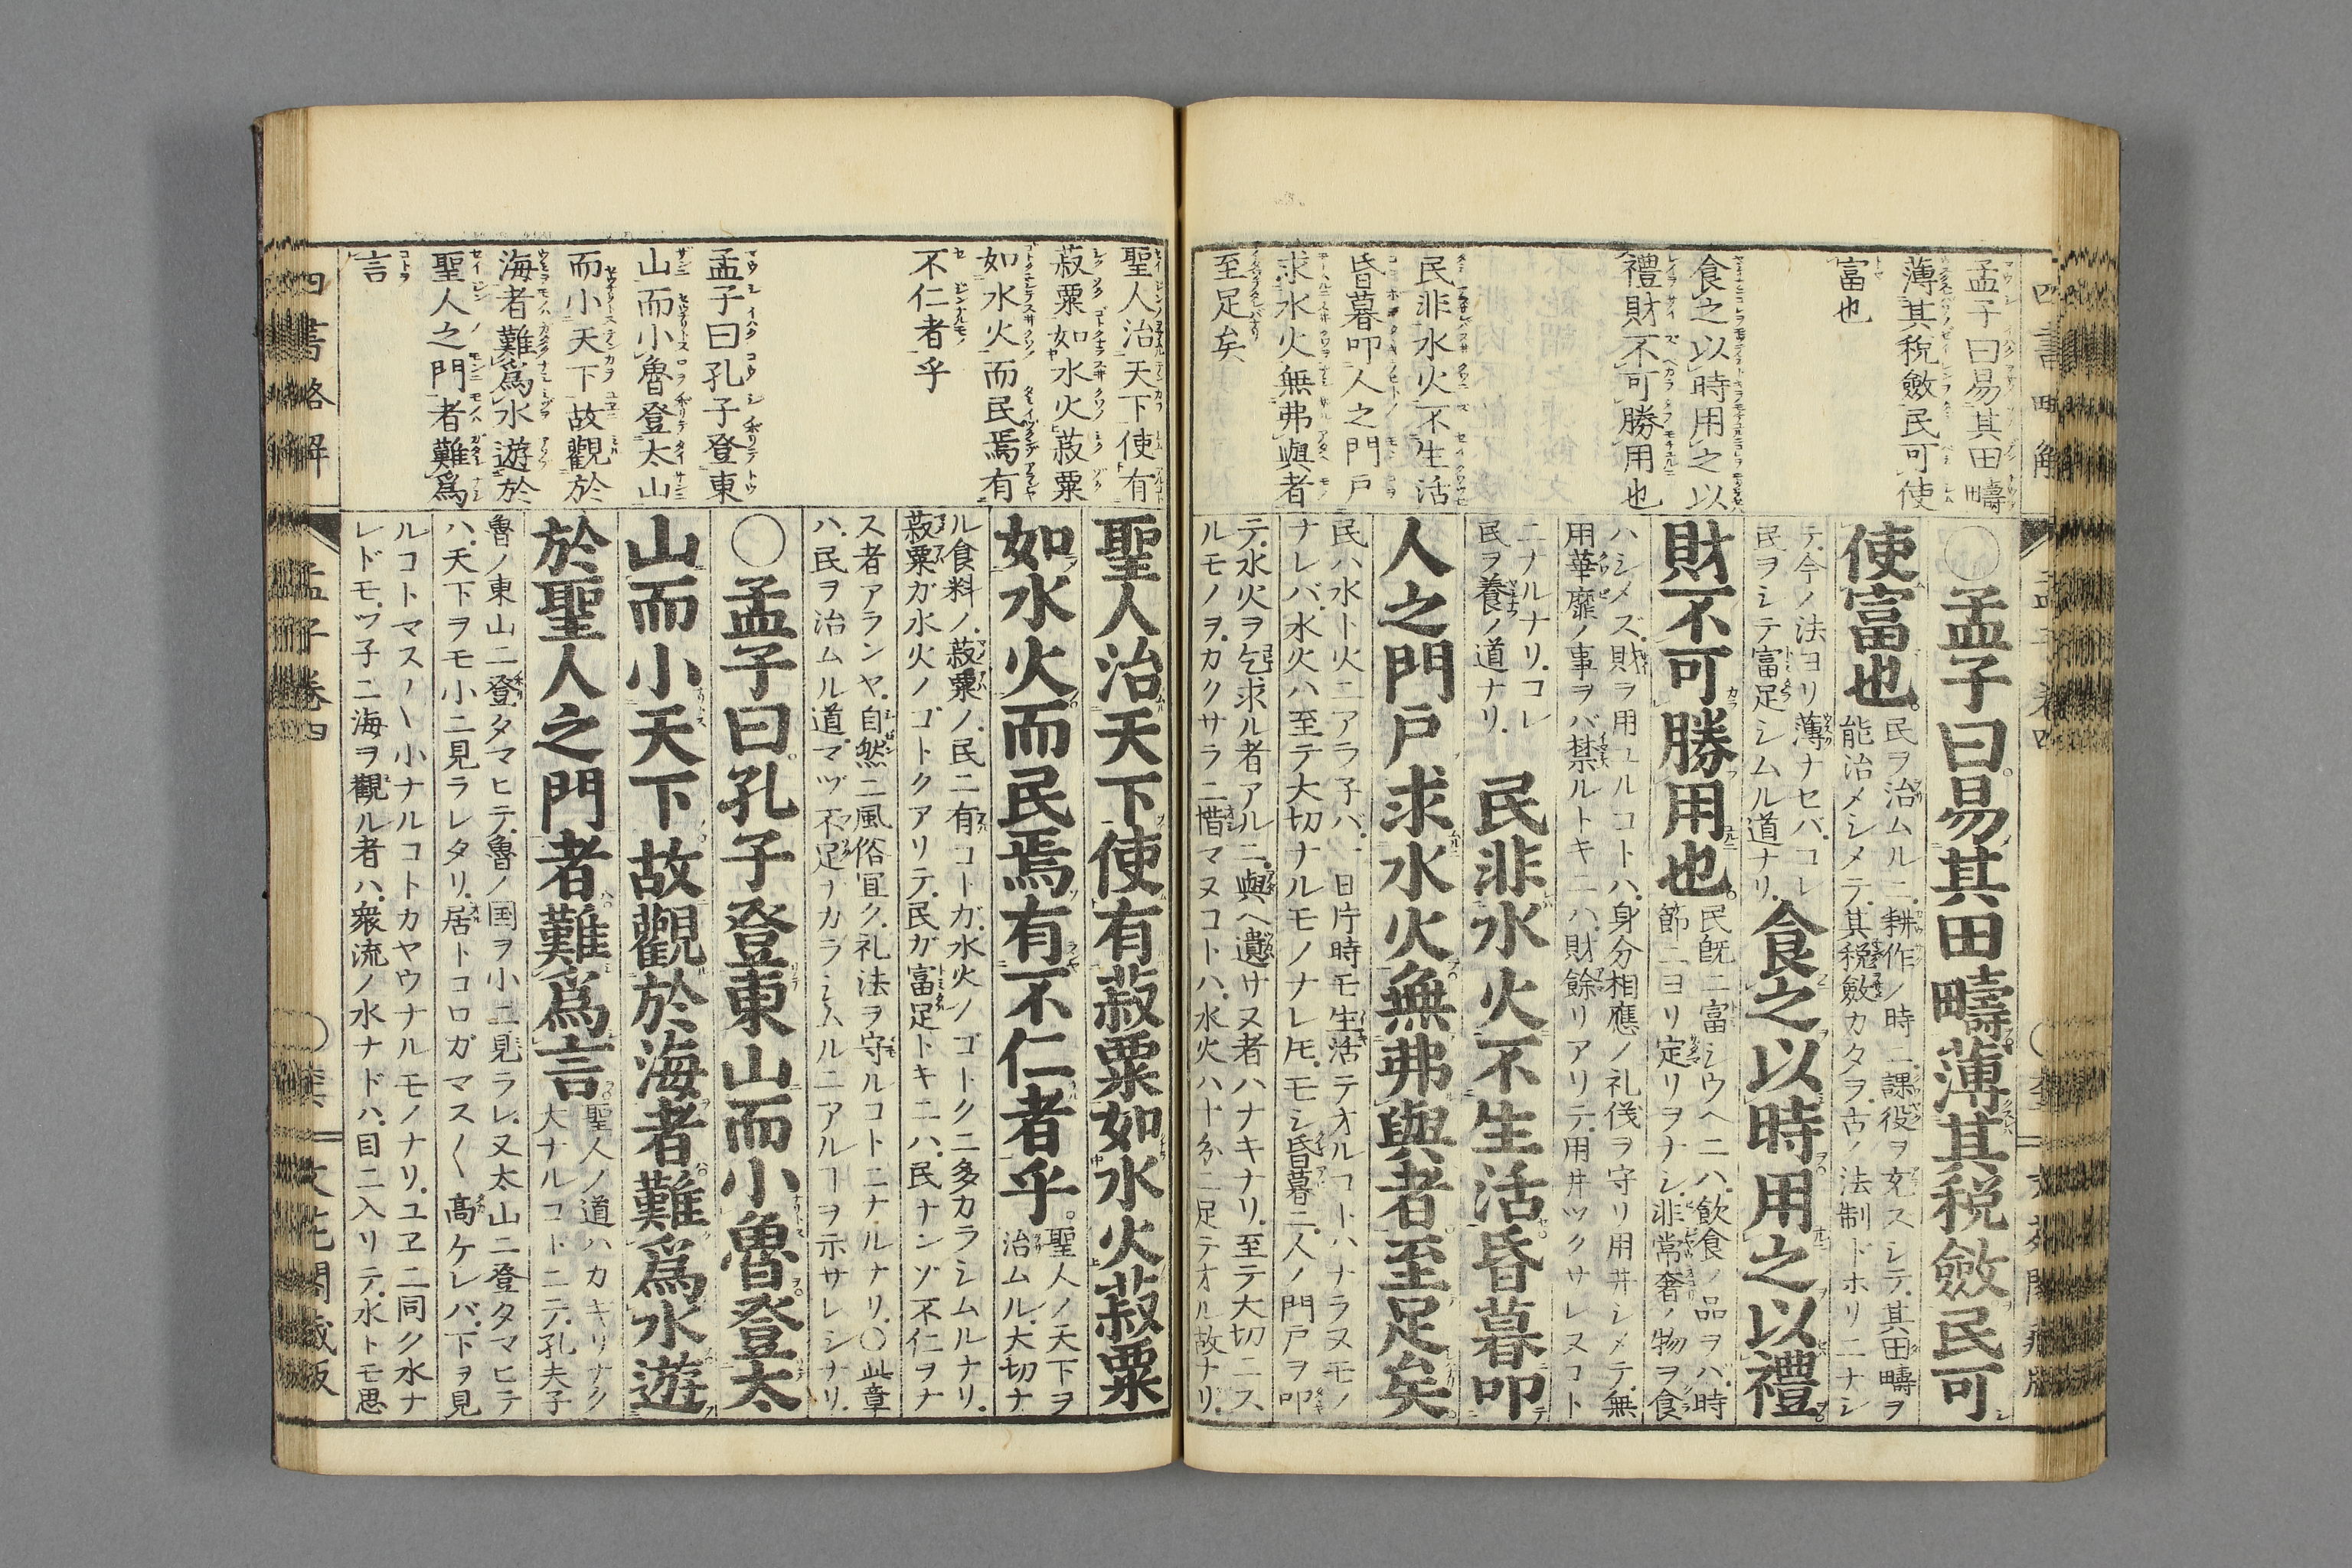 孟子曰易其田疇
薄其稅斂民可使
富也
食之以時用之以
禮財不可勝用也
民非水火不生活
昏暮叩人之門戸
求水火無弗與者
至足矣
〇孟子曰易其田疇薄其税斂民可
使富也。
民ヲ治ムルニ耕作ノ時ニ課役ヲ充スシテ其田疇ヲ
能治メシメテ其税斂カタヲ古ノ法制ドホリニナシ
テ今ノ法ヨリ薄ナセバコレ
民ヲシテ富足シムル道ナリ
食之以時用之以禮
財不可勝用也。
民既ニ富シウヘニハ飲食ノ品ヲバ時
節ニヨリ定リヲナシ非常奢ノ物ヲ食
ハシメズ財ヲ用ユルコトハ身分相應ノ礼儀ヲ守リ用井シメテ無
用華靡ノ事ヲバ禁ルトキニハ財餘リアリテ用井ツクサレヌコト
ニナルナリコレ
民ヲ養ノ道ナリ
民非水火不生活昏暮叩
人之門戸求水火無弗與者至足矣
民ハ水ト火ニアラ子バ一日片時モ生活テオルコトハナラヌモノ
ナレバ水火ハ至テ大切ナルモノナレ𪜈モシ昏暮ニ人ノ門戸ヲ叩
テ水火ヲ乞求ル者アルニ與ヘ遺サヌ者ハナキナリ至テ大切ニス
ルモノヲカクサラニ惜マヌコトハ水火ハ十分ニ足テオル故ナリ
聖人治天下使有
菽粟如水火菽粟
如水火而民焉有
不仁者乎
孟子曰孔子登東
山而小魯登太山
而小天下故觀於
海者難爲水遊於
聖人之門者難爲
言
聖人治天下使有菽粟如水火菽粟
如水火而民焉有不仁者乎。
聖人ノ天下ヲ
治ムル大切ナ
ル食料ノ菽粟ノ民ニ有コトガ水火ノゴトクニ多カラシムルナリ
菽粟ガ水火ノゴトクアリテ民ガ富足トキニハ民ナンゾ不仁ヲナ
ス者アランヤ自然ニ風俗宜ク礼法ヲ守ルコトニナルナリ〇此章
ハ民ヲ治ムル道マヅ不足ナカラシムルニアルヿヲ示サレシナリ
〇孟子曰孔子登東山而小魯登太
山而小天下故觀於海者難爲水遊
於聖人之門者難爲言
聖人ノ道ハカキリナク
大ナルコトニテ孔夫子
魯ノ東山ニ登タマヒテ魯ノ国ヲ小ニ見ラレ又太山ニ登タマヒテ
ハ天下ヲモ小ニ見ラレタリ居トコロガマス〱高ケレバ下ヲ見
ルコトマス〱小ナルコトカヤウナルモノナリユヱニ同ク水ナ
レドモツ子ニ海ヲ觀ル者ハ衆流ノ水ナドハ目ニ入リテ水トモ思
四書略解
孟子卷四